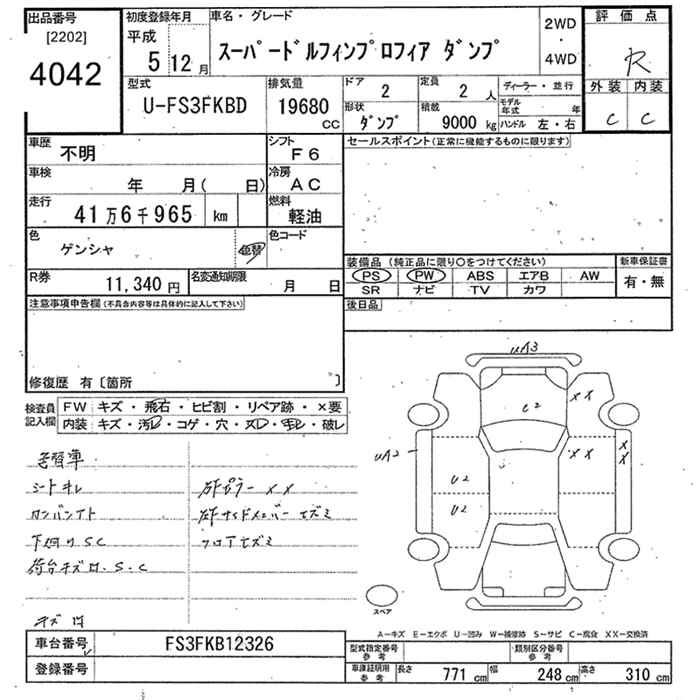 出品番号
[2202]
4042
初度登録年月
平成
5 12月
車名・グレード
スーパードルフィンプロフィア ダンプ
2WD
4WD
評価点
R
外装 内装
C C
型式
U-FS3FKBD
排気量
19680
CC
ドア
2
定員
2 人
ディーラー・並行
形状
ダンプ
積載
9000 kg
モデル年式 年
ハンドル 左・右
車歴
不明
シフト
F6
車検
年 月( 日)
冷房
AC
走行
41万6千965 km
燃料
軽油
色
ゲンシャ
色替
色コード
R券
11,340 円
名変通知期限
月 日
セールスポイント(正常に機能するものに限ります)
装備品(純正品に限り○をつけてください)
PS PW ABS エアB AW
SR ナビ TV カワ
新車保証書
有・無
後日品
注意事項申告欄(不具合内容等は具体的に記入して下さい)
修復歴 有〔箇所 〕
検査員記入欄
FW キズ・飛石・ヒビ割・リペア跡・×要
内装 キズ・汚レ・コゲ・穴・スレ・キレ・破レ
シートキレ
下廻りSC
荷台キズU.S.C
XX
フロアエズミ
キズ凹
UA3
U2
XX
UA2
XX
XX
U2
U2
スペア
A−キズ E−エクボ U−凹み W−補修跡 S−サビ C−腐食 XX−交換済
車台番号
FS3FKB12326
登録番号
型式指定番号参考
類別区分番号参考
車庫証明用参考
長さ 771 cm 幅 248 cm 高さ 310 cm